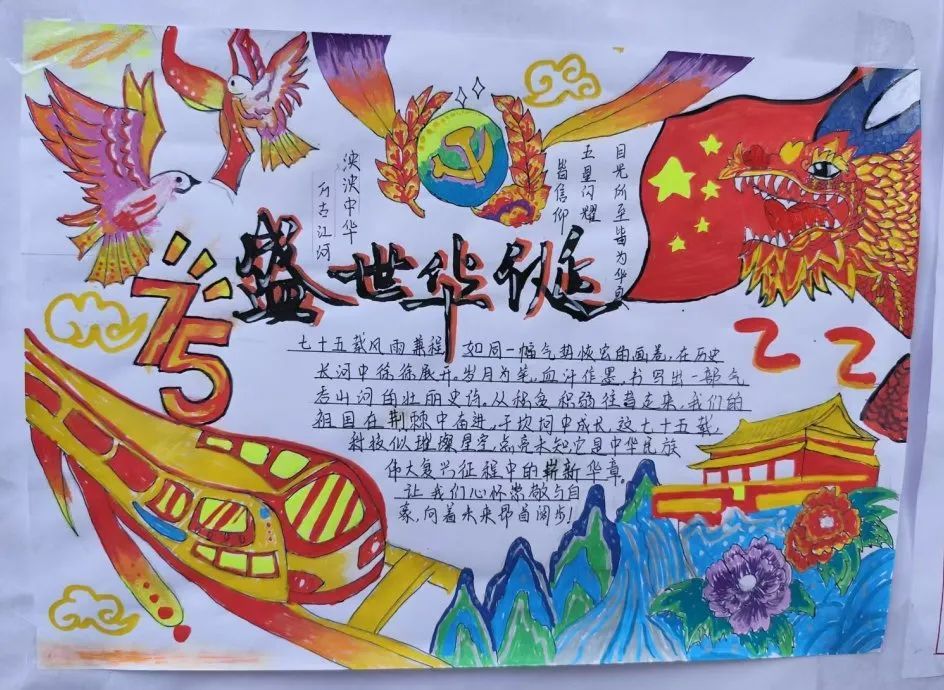 泱泱中华
万古江河
目光所至皆为华夏
五星闪耀
皆信仰
75
盛世华诞
七十五载风雨兼程,如同一幅气势恢宏的画卷,在历史
长河中徐徐展开。岁月为笔,血汗作墨,书写出一部气
吞山河的壮丽史诗。从积贫积弱往昔走来,我们的
祖国在荆棘中奋进,于坎坷中成长,这七十五载,
科技似璀璨星空,点亮未知它是中华民族
伟大复兴征程中的崭新华章。
让我们心怀崇敬与自
豪,向着未来昂首阔步!